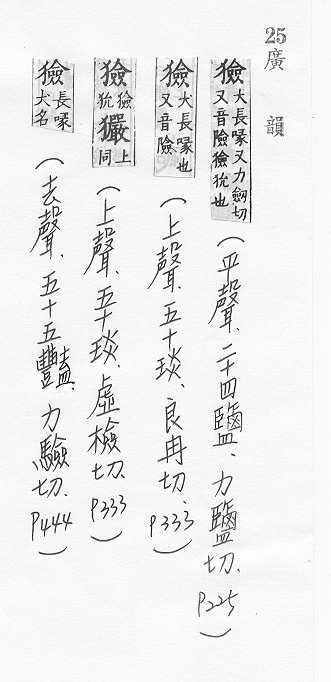 25廣韻
獫犬長喙又力劒切又音險獫狁也(平聲、二十四鹽、力鹽切、P225)
獫犬長喙也又音險(上聲、五十琰、良冉切、P333)
獫獫狁玁上同(上聲、五十琰、虛檢切、P333)
獫長喙犬名(去聲、五十五豔、力驗切、P444)